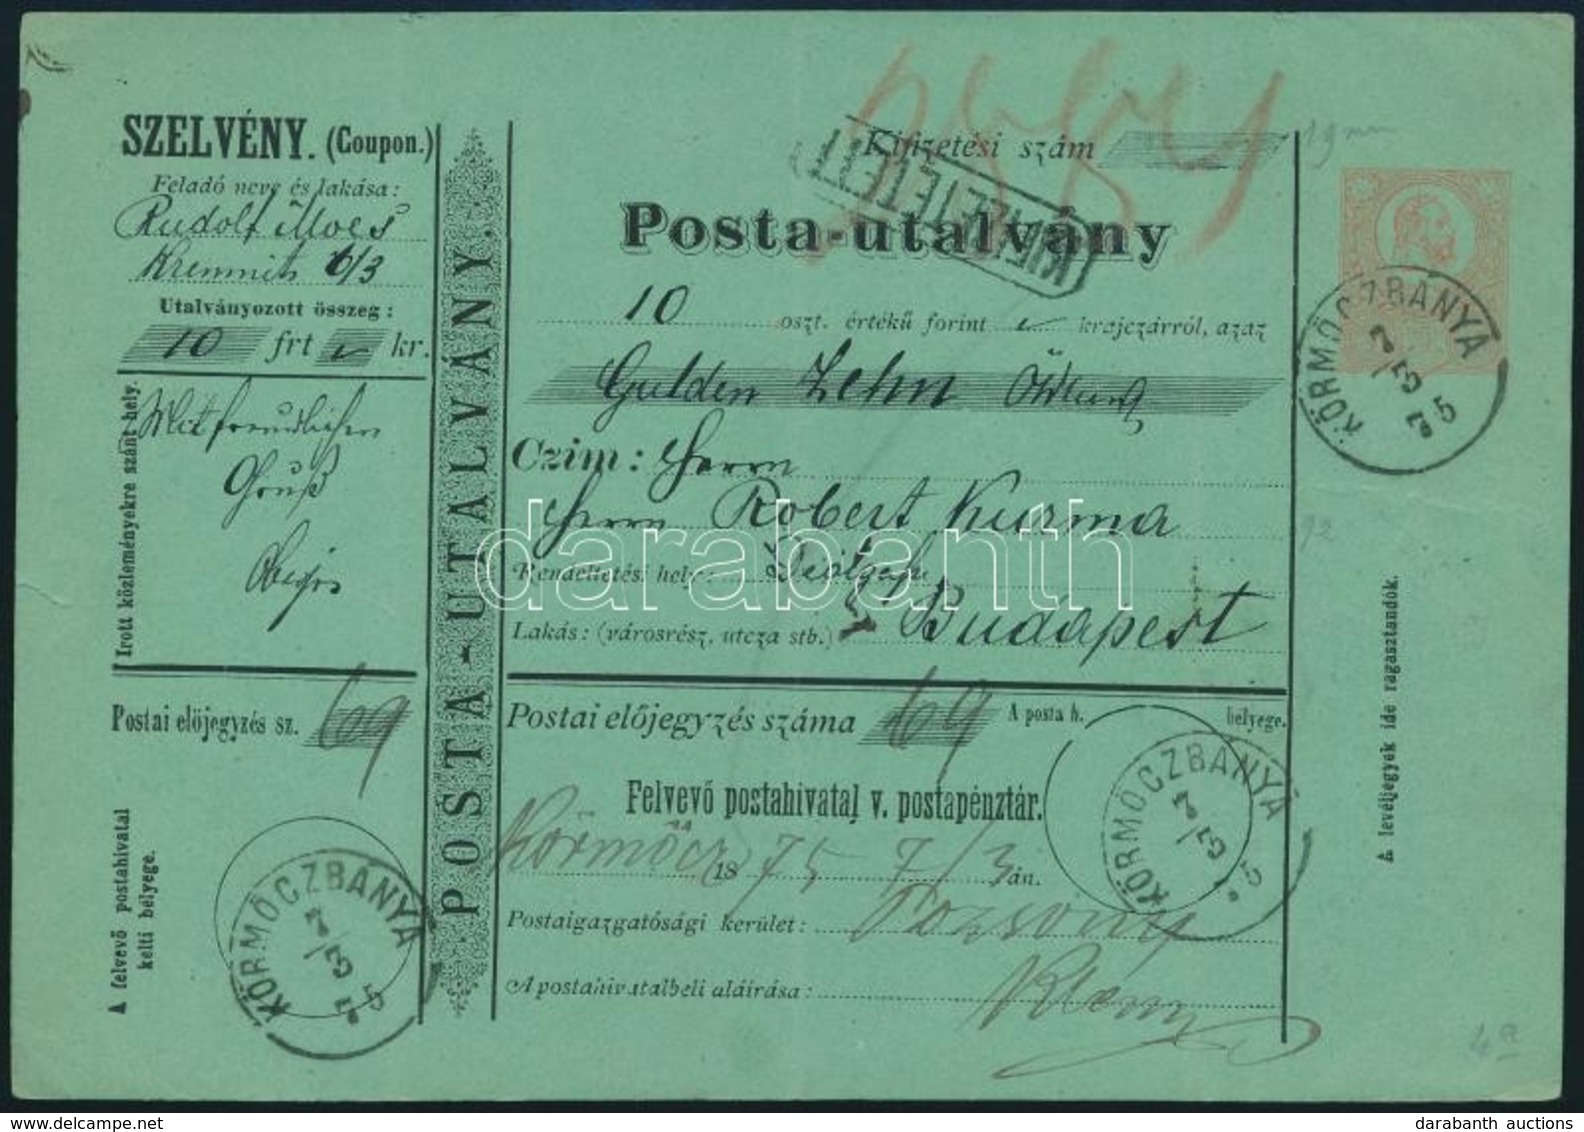 SZELVÉNY. (Coupon.)
Feladó neve és lakása:
Rudolf Moes
Kremnitz 6/3
Utalványozott összeg:
10 frt kr.
Mit freundlichem
Gruß
Irott közleményekre szánt hely.
Postai előjegyzés sz. 69
A felvevő postahivatal
kelti bélyege.
KÖRMÖCZBÁNYA
7/3
75
POSTA-UTALVÁNY.
Kifizetési szám
KIFIZETTETETT
Posta-utalvány
10 oszt. értékű forint krajczárról, azaz
Gulden Zehn ÖWhrung
Czim: Herrn
Herrn Robert Kurzma
Rendeltetési hely:
Lakás: (városrész, utcza stb.) Budapest
Postai előjegyzés száma 69
A posta h. bélyege.
Felvevő postahivatal v. postapénztár.
Körmöcz 1875 7/3 án.
Postaigazgatósági kerület: Pozsony
A postahivatalbeli aláírása:
KÖRMÖCZBÁNYA
7/3
75
19 mm
KÖRMÖCZBÁNYA
7/3
75
92
A levéljegyek ide ragasztandók.
4a
darabanth
darabanth auctions
www.delcampe.net